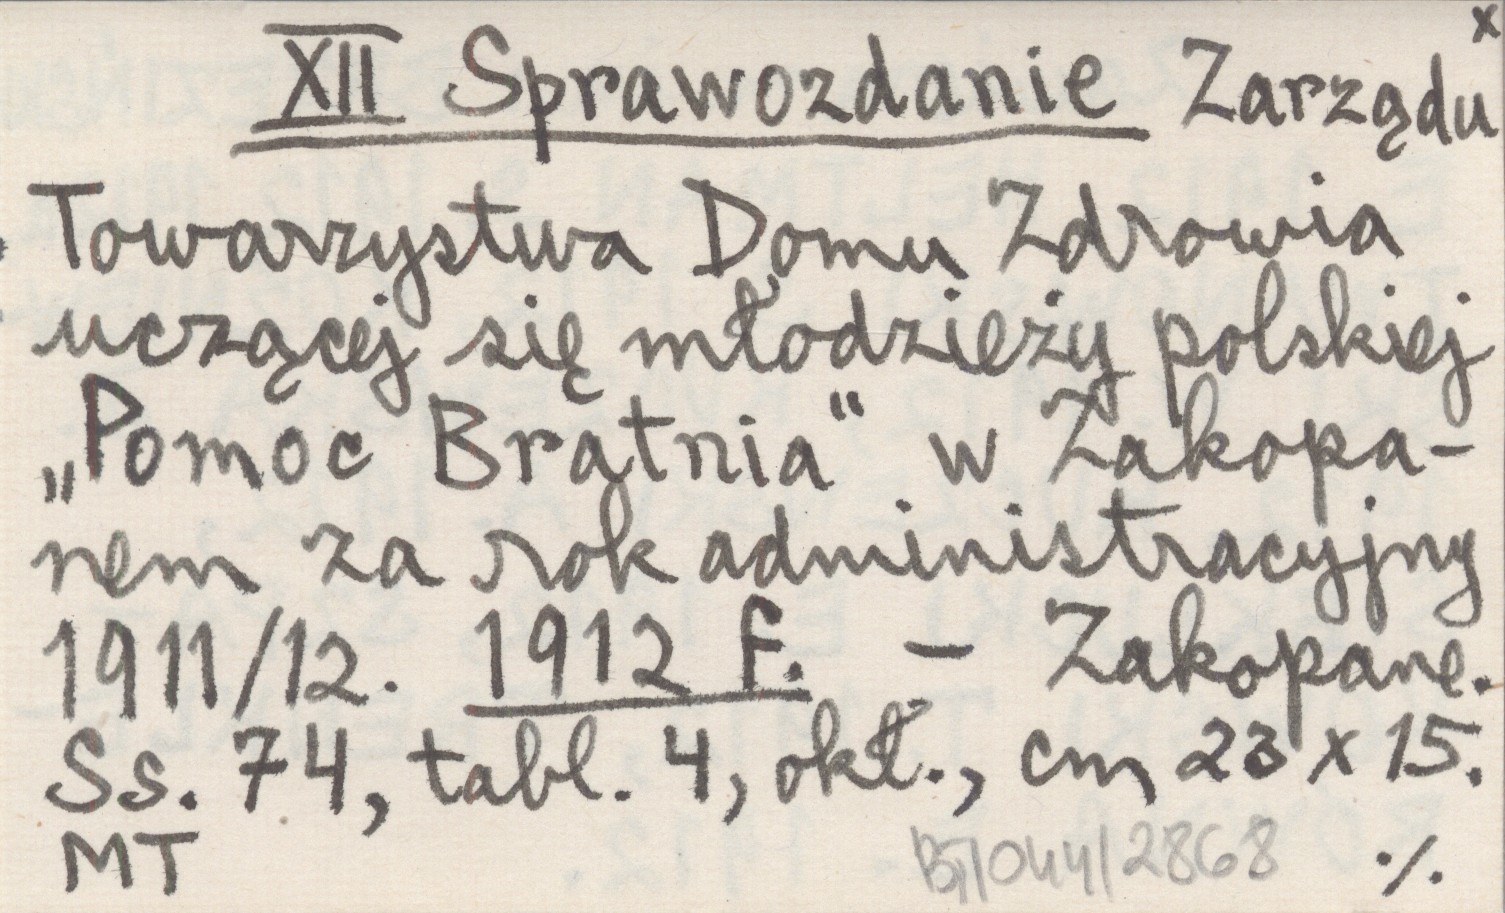 XII Sprawozdanie Zarządu x
Towarzystwa Domu Zdrowia
uczącej się młodzieży polskiej
„Pomoc Bratnia“ w Zakopa-
nem za rok administracyjny
1911/12. 1912 f. – Zakopane.
Ss. 74, tabl. 4, okł., cm 23 x 15.
MT /044/2868 ./.